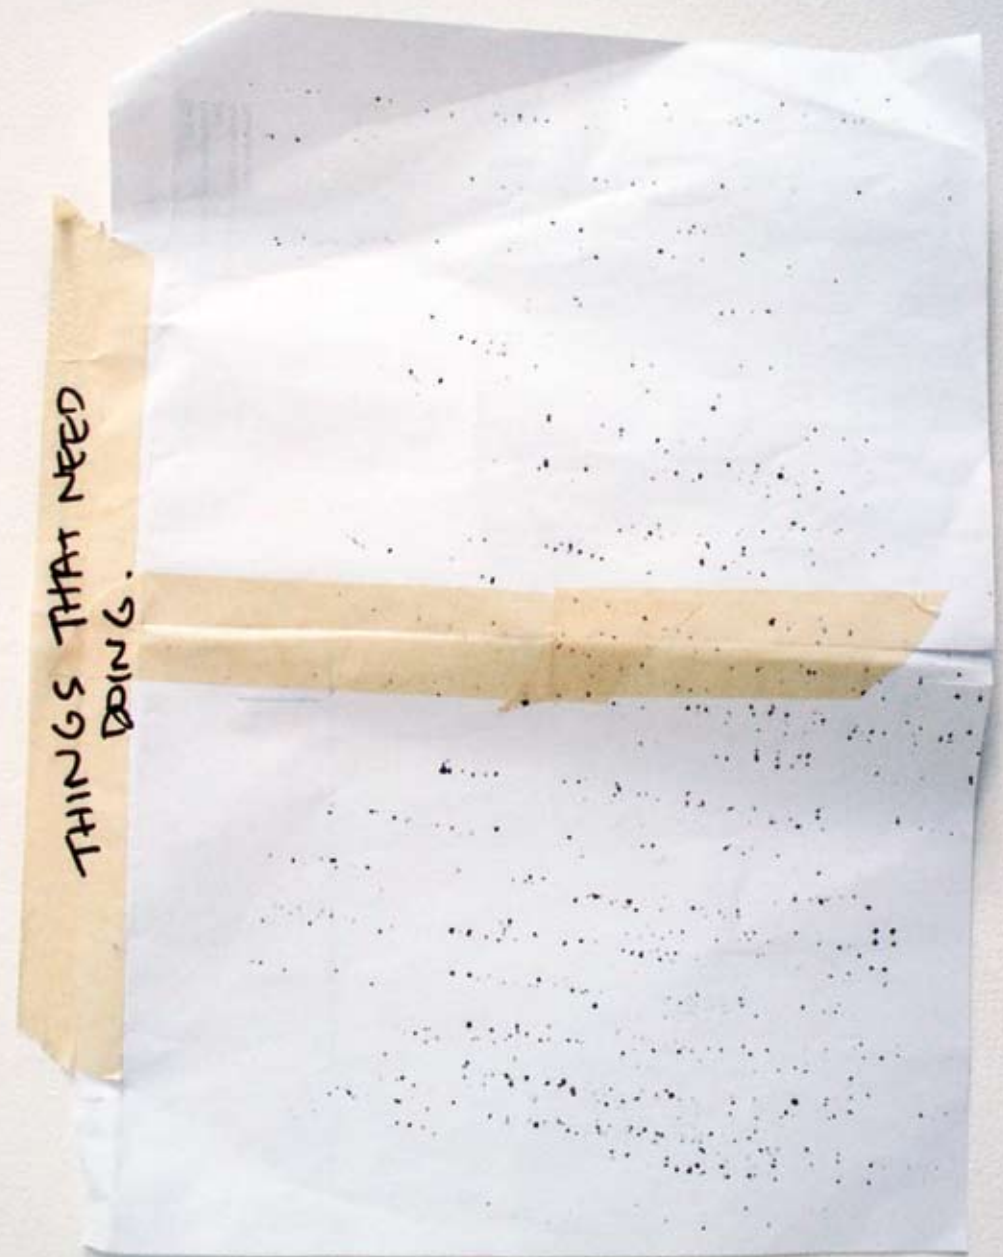 THINGS THAT NEED
DOING.